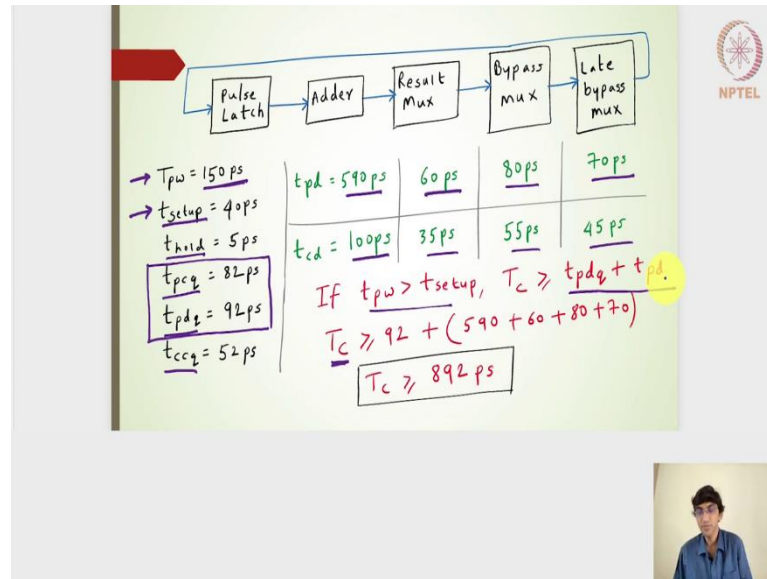 NPTEL
Pulse Latch
Adder
Result Mux
Bypass mux
Late bypass mux
→ Tpw = 150ps
→ tsetup = 40ps
thold = 5ps
tpcq = 82ps
tpdq = 92ps
tccq = 52ps
tpd = 590ps 60ps 80ps 70ps
tcd = 100ps 35ps 55ps 45ps
If tpw > tsetup, Tc ≥ tpdq + tpd.
Tc ≥ 92 + (590 + 60 + 80 + 70)
Tc ≥ 892 ps